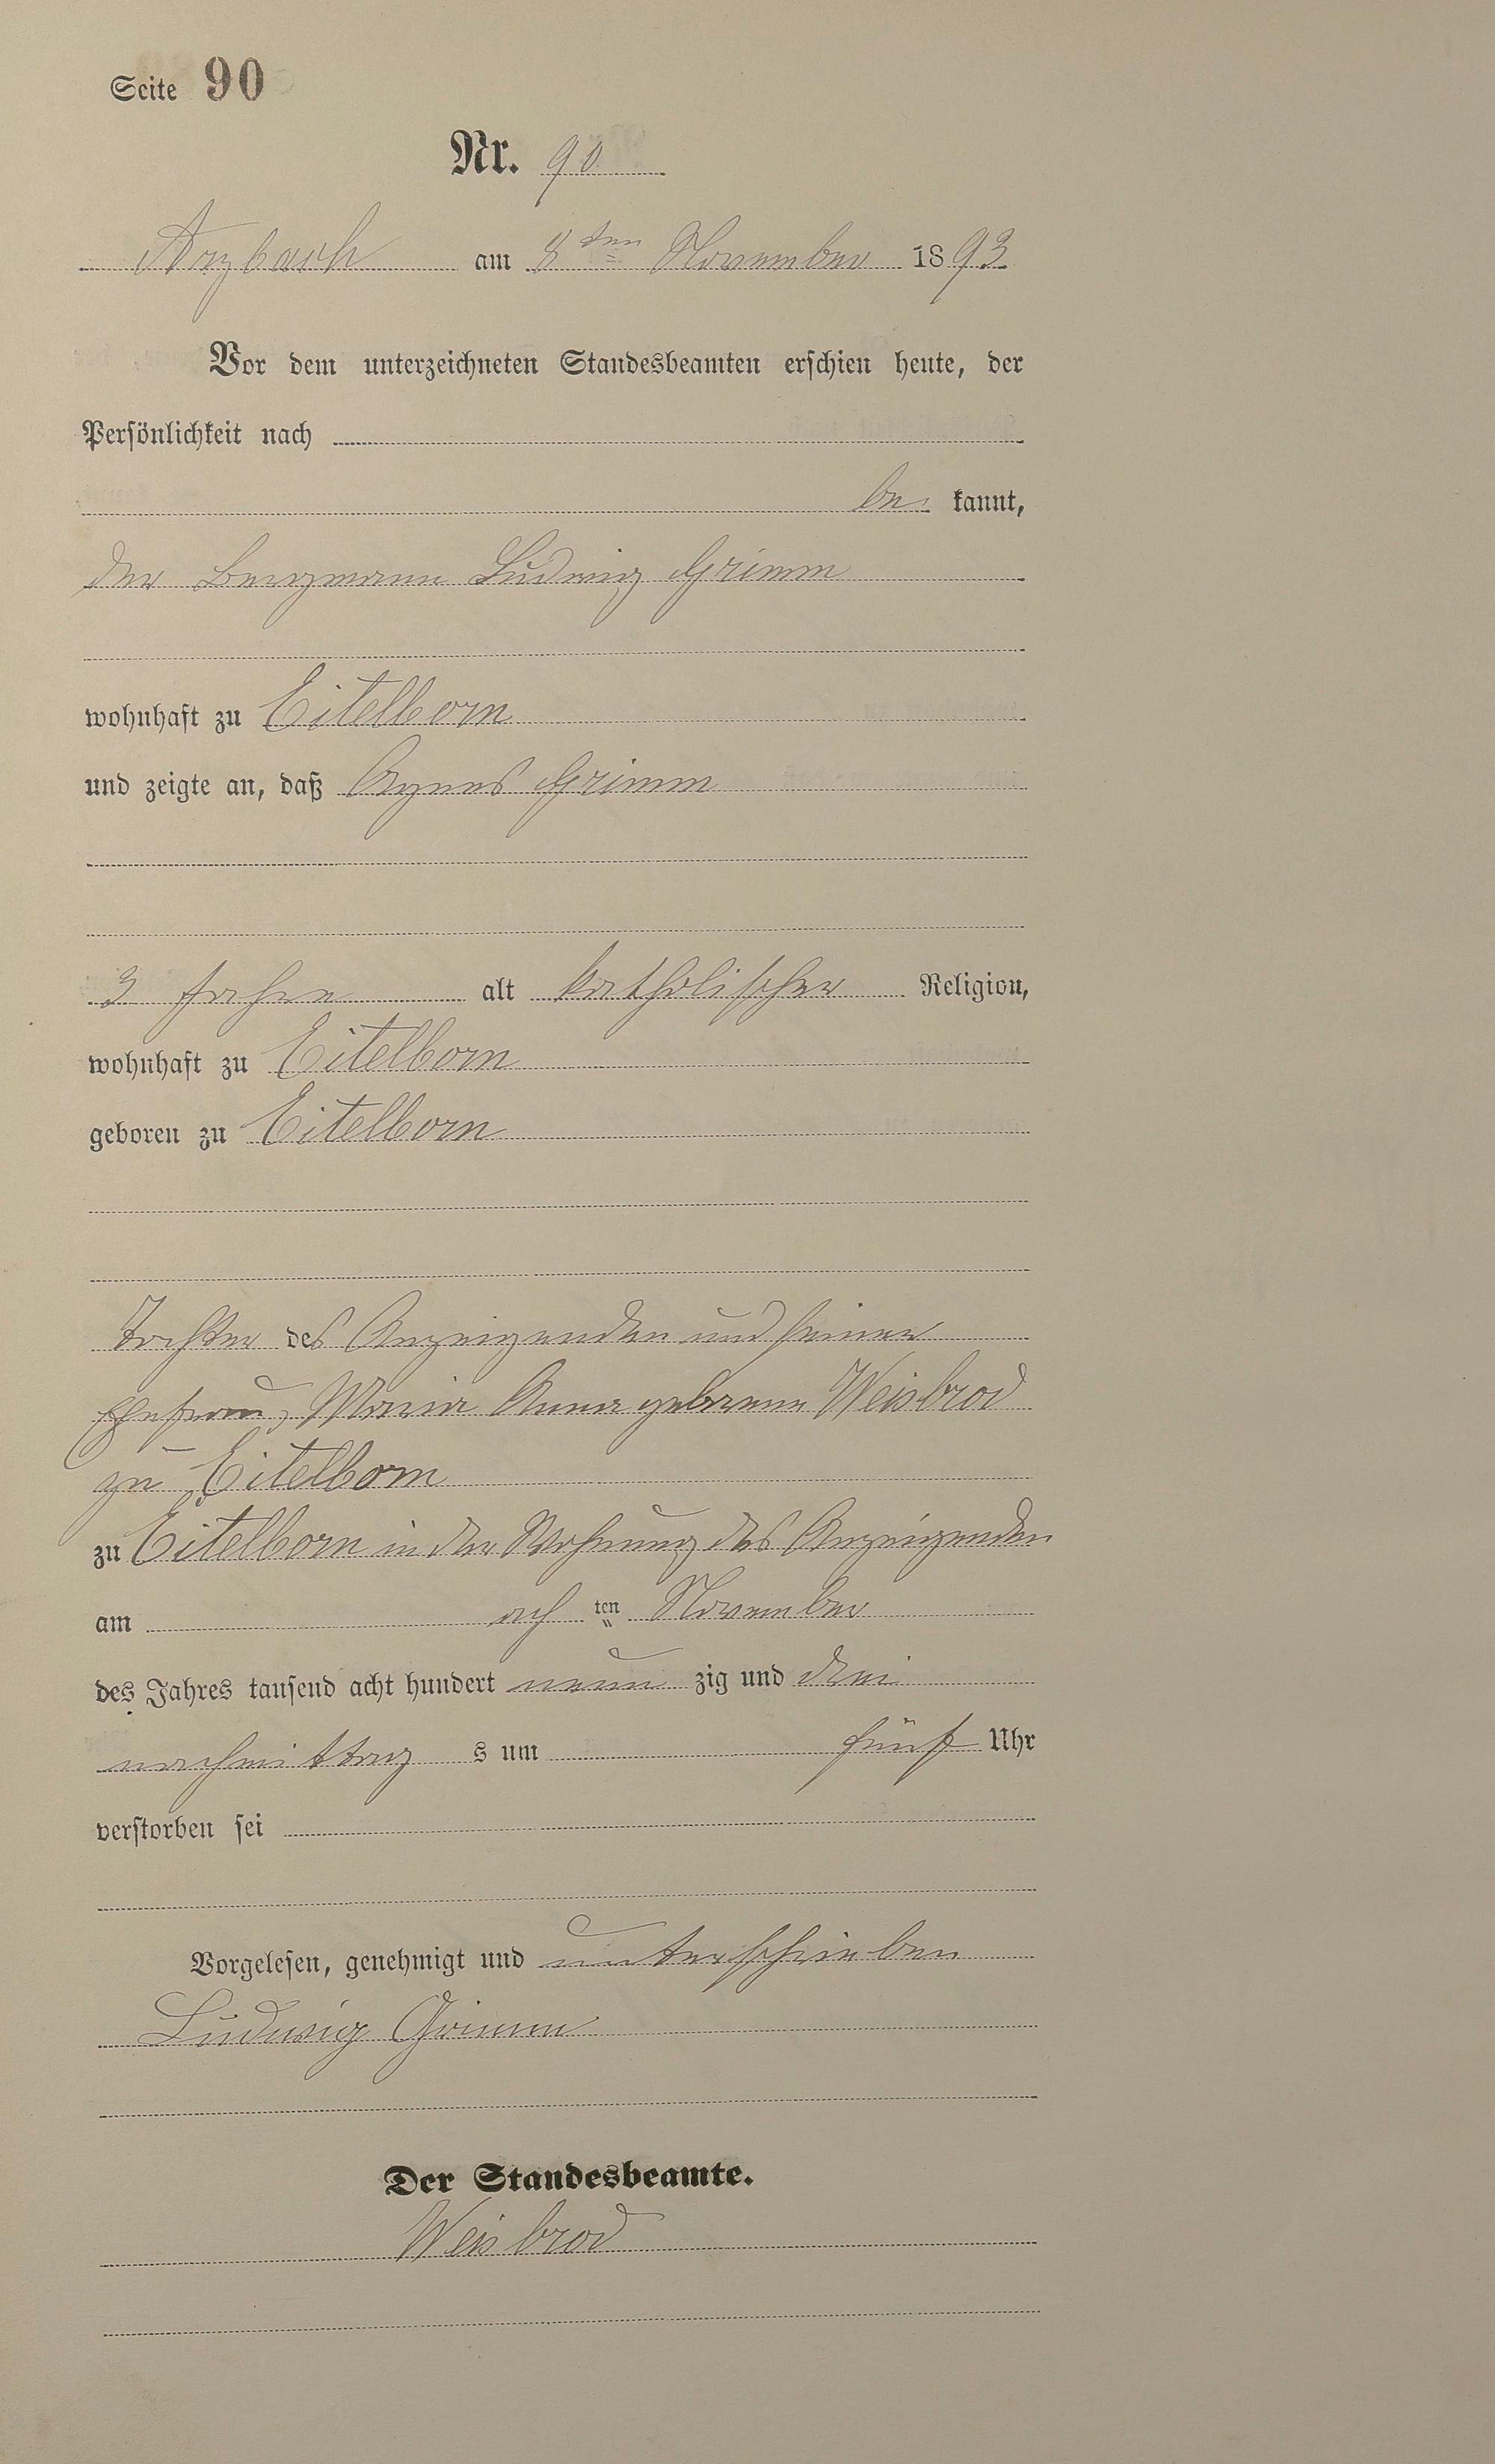 Seite 90
Nr. 90
Arzbach am 8ten November 1893
Vor dem unterzeichneten Standesbeamten erschien heute, der
Persönlichkeit nach
be kannt,
der Bergmann Ludwig Grimm
wohnhaft zu Eitelborn
und zeigte an, daß Agnes Grimm
3 Jahre alt katholischer Religion,
wohnhaft zu Eitelborn
geboren zu Eitelborn
Tochter des Anzeigenden und seiner
Ehefrau, Maria Anna geborene Weisbrod
zu Eitelborn
zu Eitelborn in der Wohnung des Anzeigenden
am ach ten November
des Jahres tausend acht hundert neun zig und drei
nachmittag s um fünf Uhr
verstorben sei
Vorgelesen, genehmigt und unterschrieben
Ludwig Grimm
Der Standesbeamte.
Weisbrod